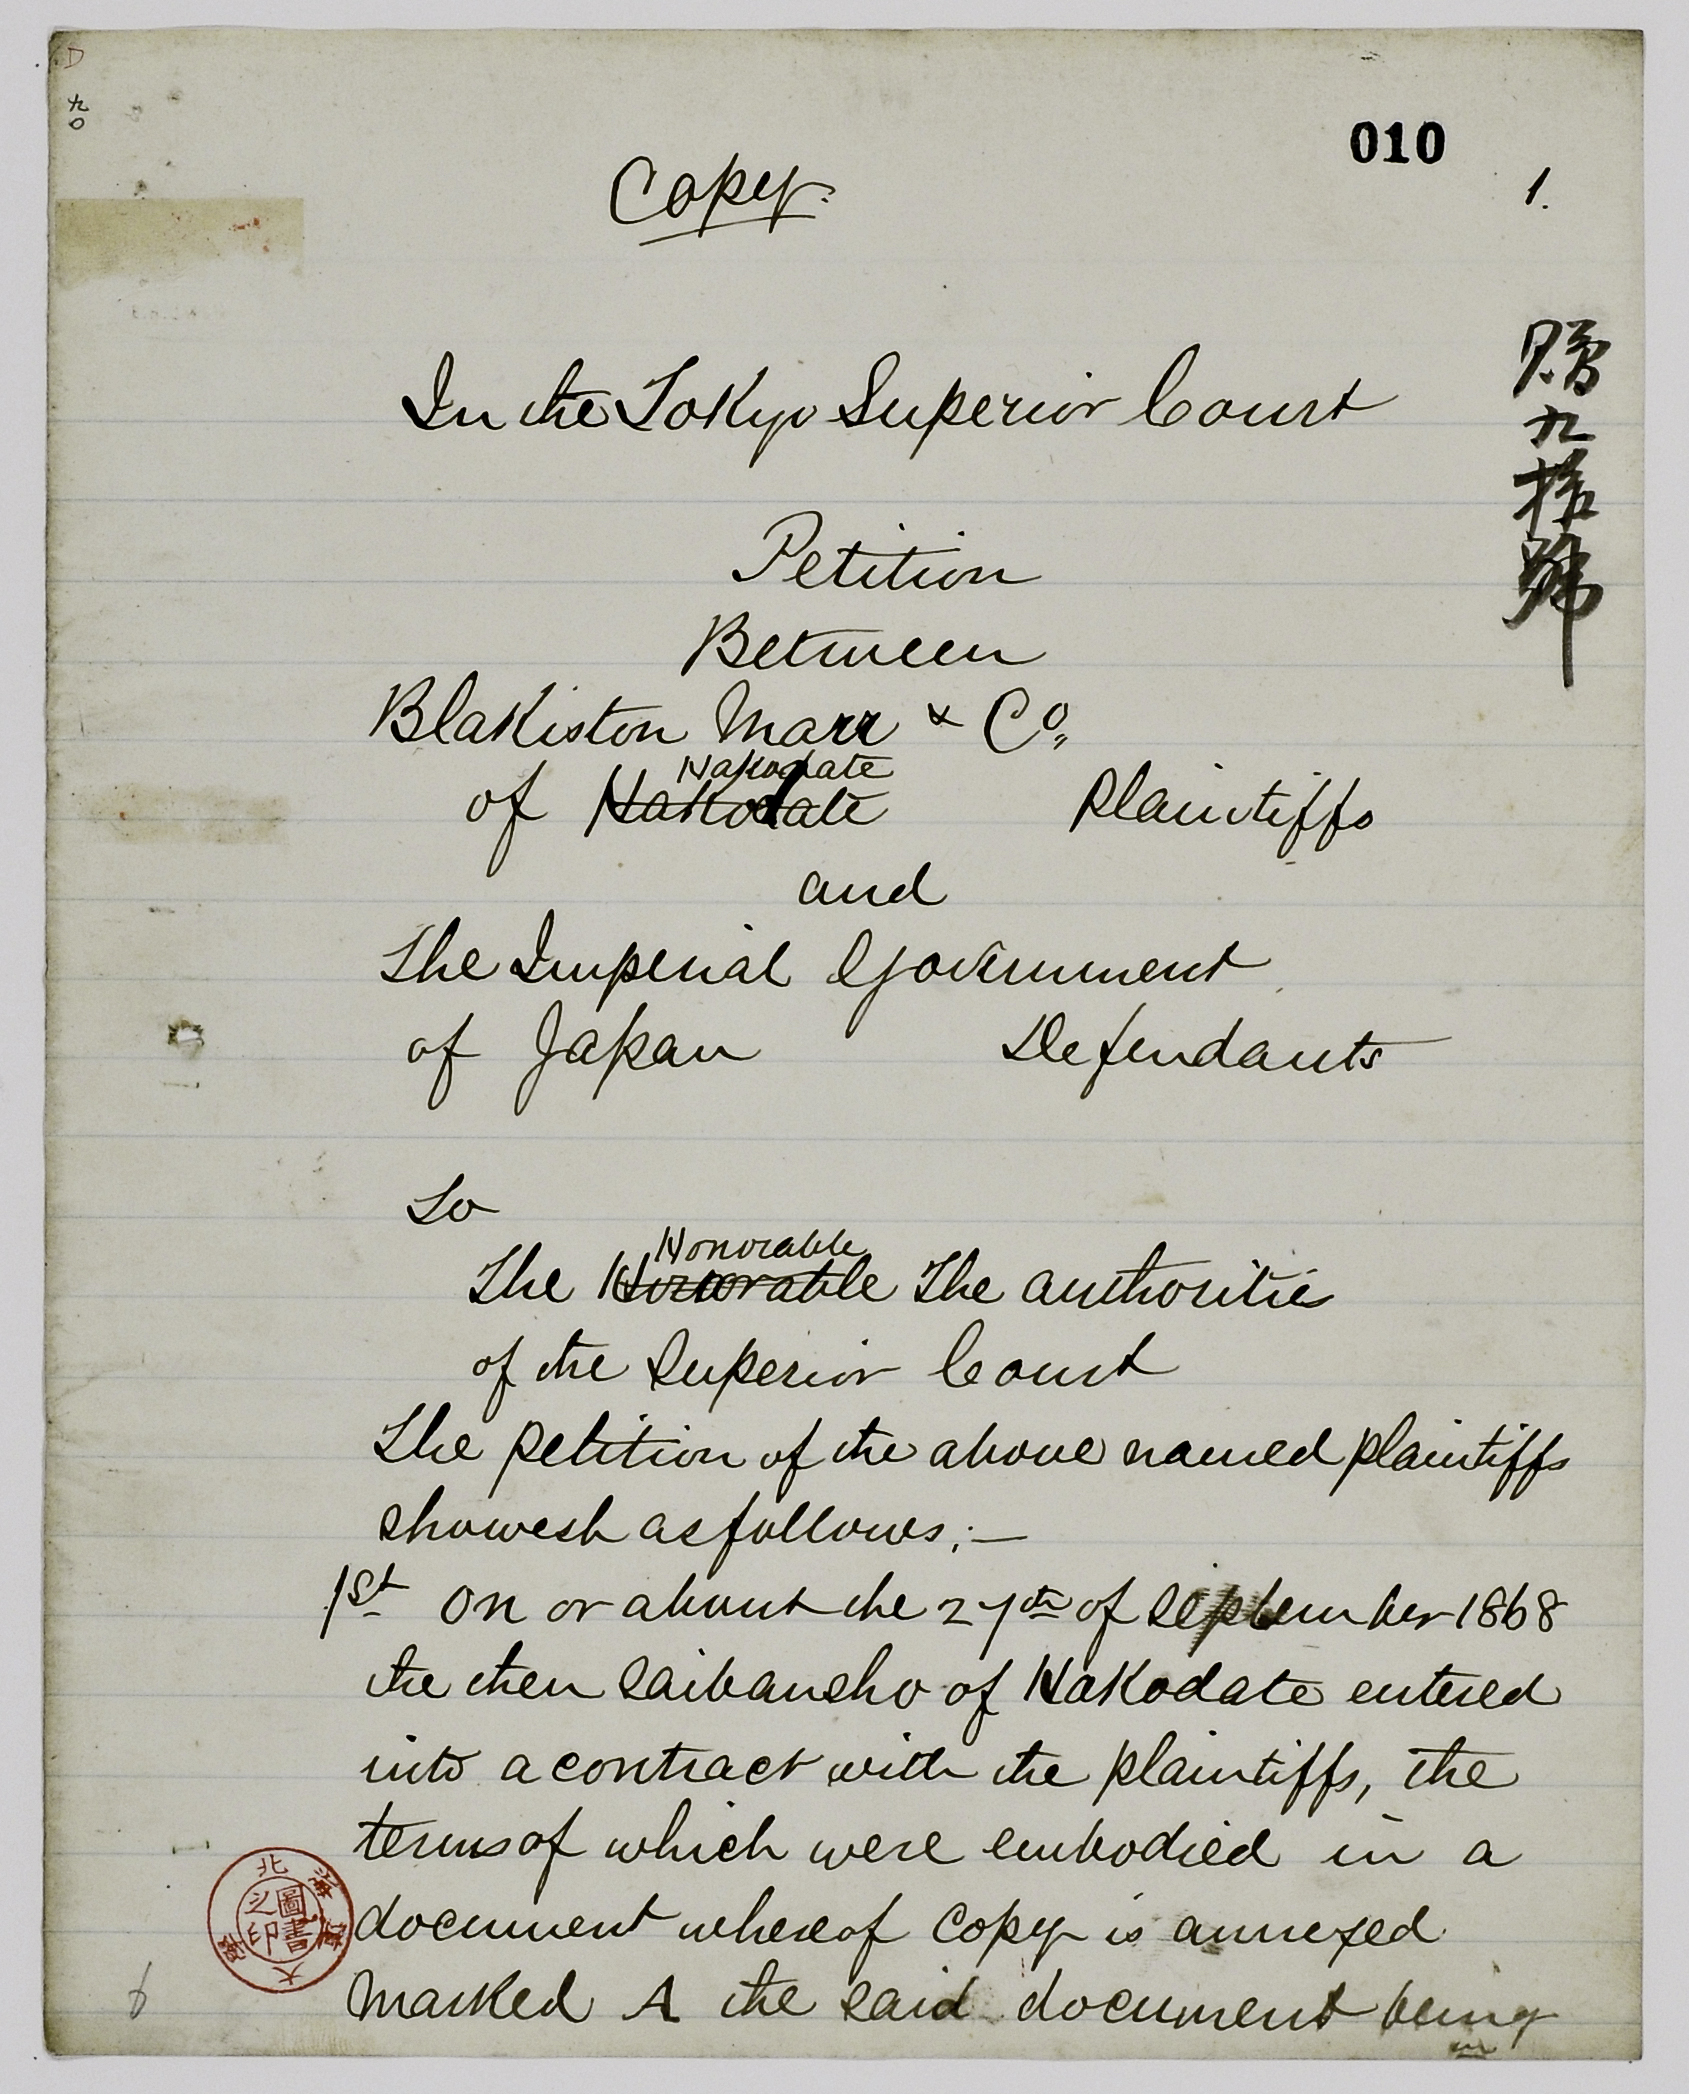 D
九〇
010
1.
Copy.
贈九拾號
In the Tokyo Superior Court
Petition
Between
Blakiston Marr & Co.,
Hakodate
of Hakodate Plaintiffs
and
The Imperial Government
of Japan Defendants
To
Honorable
The Honorable The authorities
of the Superior Court
The petition of the above named plaintiffs
showeth as follows:—
1st On or about the 27th of September 1868
the then Saibansho of Hakodate entered
into a contract with the plaintiffs, the
terms of which were embodied in a
document whereof copy is annexed
marked A the said document being
北海道大學
圖書之印